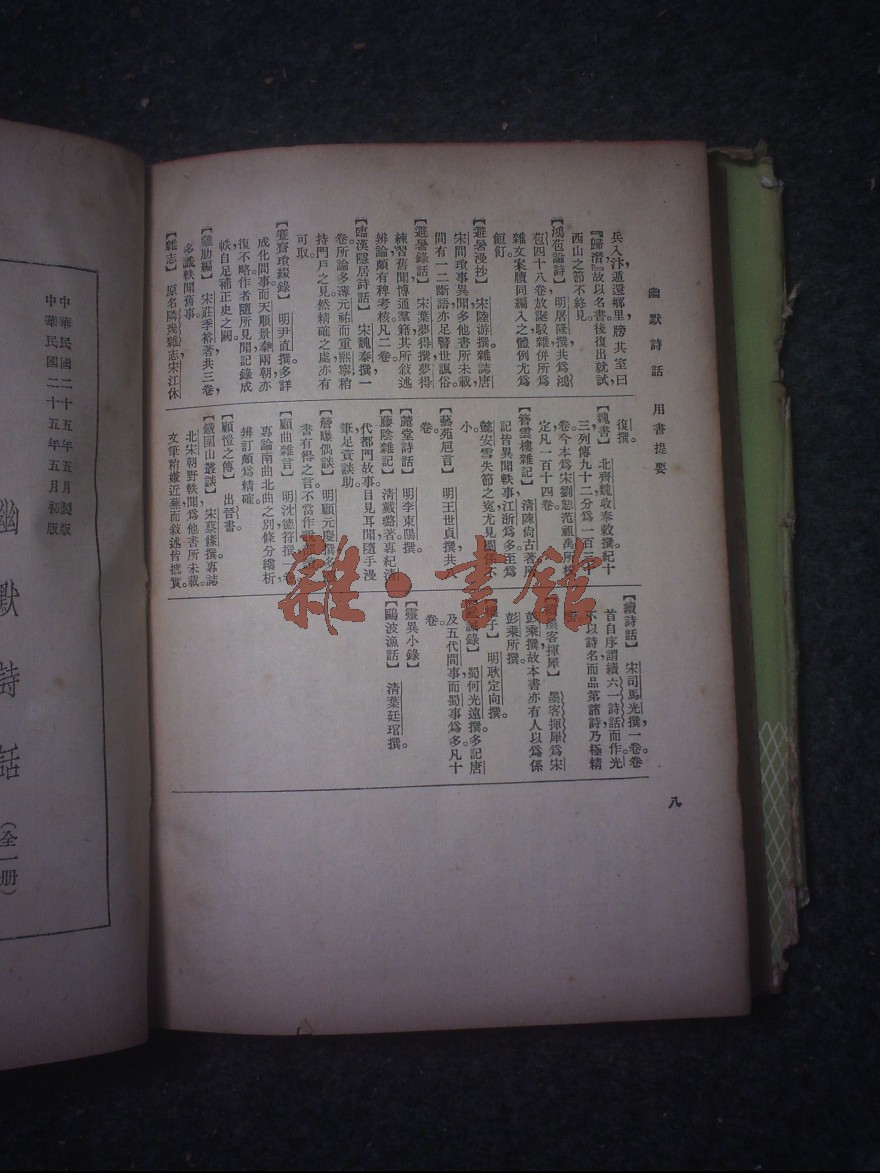 幽默詩話　用書提要
兵入汴遁還鄉里牓其室曰
『歸潛』故以名書後復出就試
西山之節不終見
【鴻苞論詩】明屠隆撰共爲鴻
苞四十八卷故詼駁雜併所爲
雜文案牘同編入之體例尤爲
飣餖
【避暑漫抄】宋陸游撰雜誌唐
宋間瓊事異聞多他書所未載
間有一二斷語亦足警世諷俗
【避暑錄話】宋葉夢得撰夢得
練習舊聞博通羣籍其所敘述
辨論頗有裨考核凡二卷。
【臨漢隱居詩話】宋魏泰撰一
卷所論多薄元祐而重熙寧稍
持門戶之見然精確之處亦有
可取。
【謇齋瑣綴錄】明尹直撰多詳
成化間事而天順景泰兩朝亦
復不略作者隨所見聞記錄成
帙自足補正史之闕。
【雞肋編】宋莊季裕著共三卷,
多識軼聞舊事。
【雜志】原名隣幾雜志宋江休
復撰。
【魏書】北齊魏收奉敕撰紀十
三列傳九十二分爲一百三十
卷今本爲宋劉恕范祖禹所校
定凡一百十四卷。
【簪雲樓雜記】清陳尙古著所
記皆異聞軼事江浙爲多至爲
懿安雪失節之冤尤見關係不
小。
【藝苑卮言】明王世貞撰共
卷。
【麓堂詩話】明李東陽撰。
【藤陰雜記】清戴璐著專紀清
代都門故事目見耳聞隨手漫
筆足資談助。
【簷曝偶談】明顧元慶撰多
書有得之言不當作
【顧曲雜言】明沈德符撰一卷
專論南曲北曲之別條分縷析
辨訂頗爲精確。
【顧愷之傳】出晉書
【鐵圍山叢談】宋蔡絛撰專誌
北宋朝野軼聞爲他書所未載。
文筆稍嫌近蕪而敘述皆摭實。
【續詩話】宋司馬光撰一卷卷
首自序謂續六一詩話而作光
不以詩名而品第諸詩乃極精
密。
墨客揮犀】墨客揮犀爲宋
彭乘撰故本書亦有人以爲係
彭乘所撰。
子】明耿定向撰。
錄】蜀何光遠撰多記唐
及五代間事而蜀事爲多凡十
卷。
【靈異小錄】
【鷗波漁話】清葉廷琯撰。
八
中華民國二十五年五月製版
中華民國二十五年五月初版
幽默詩話（全一册）
雜·書館